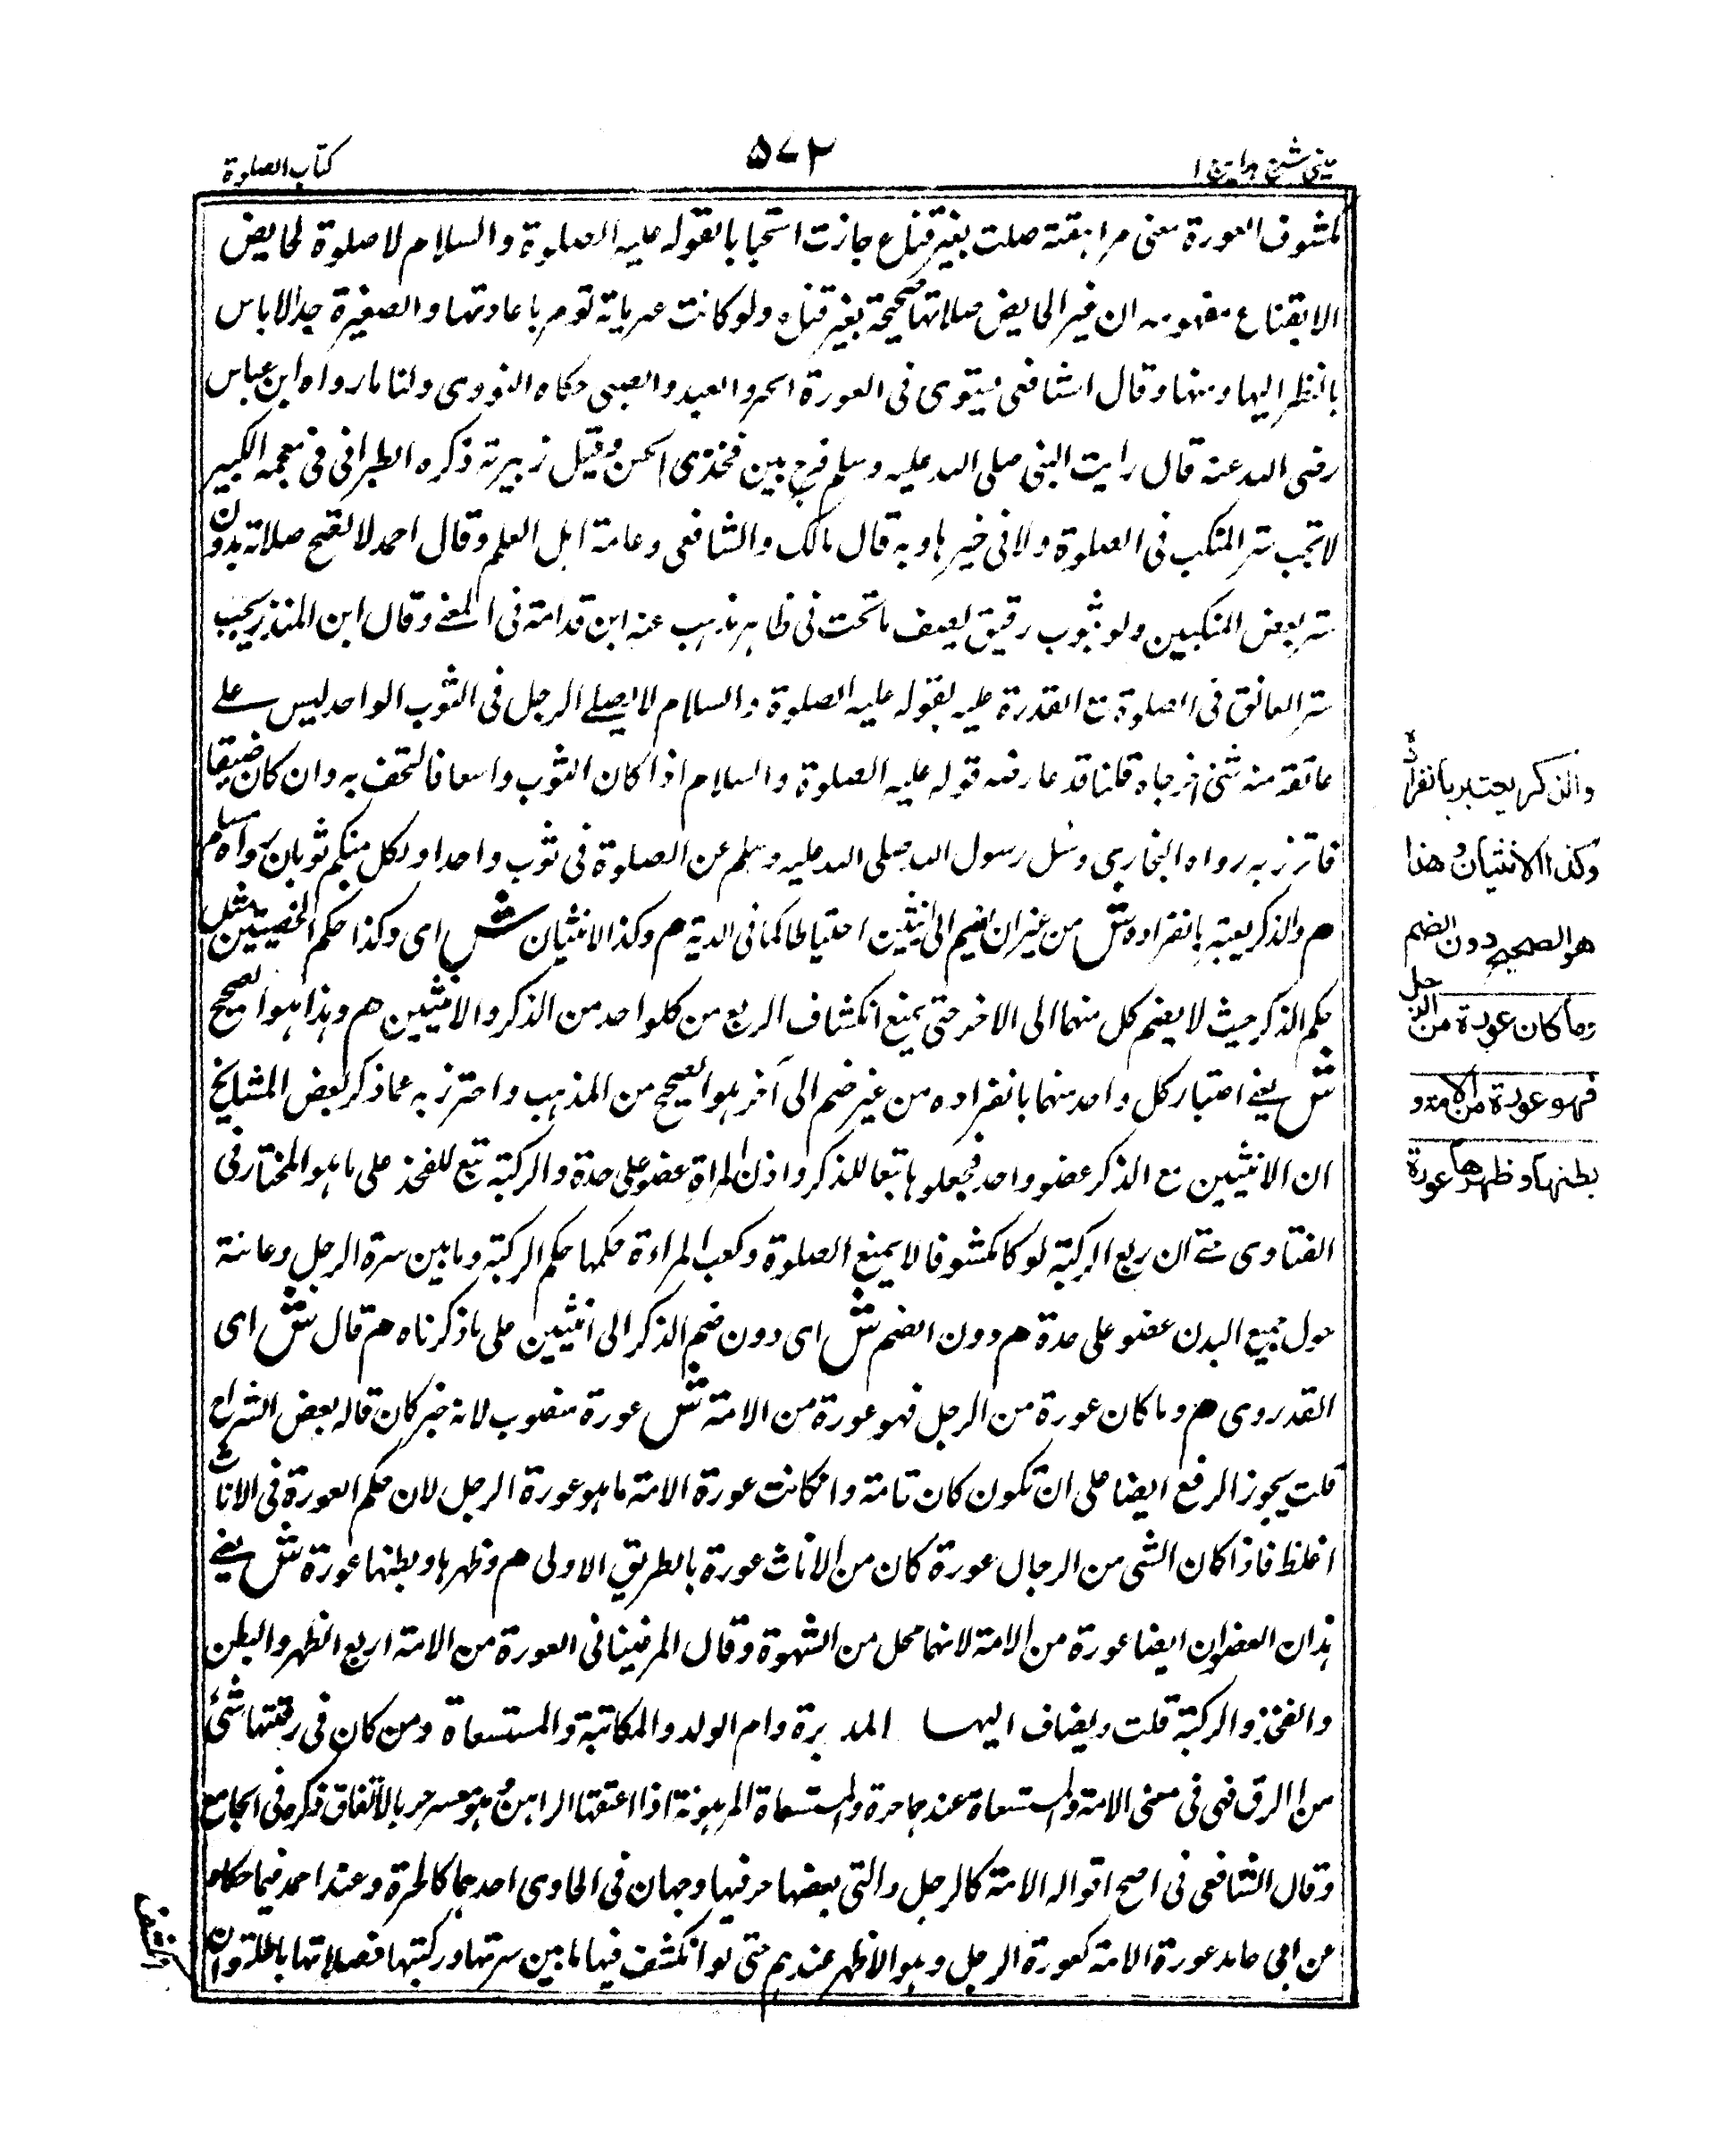 عینی شرح هدایة ج ۱
۵۷۲
کتاب الصلوة
مکشوف العورة معنی مراهقة صلت بغیر قناع جازت استحبابا لقوله علیه الصلوة والسلام لا صلوة لحایض
الا بقناع مفهومه ان غیر الحایض صلاتها صحیحة بغیر قناع ولو کانت عریانة تومر باعادتها والصغیرة جدا لا باس
بالنظر الیها ومنها وقال الشافعی یستوی فی العورة الحر والعبد والصبی حکاه النووی ولنا ما رواه ابن عباس
رضی الله عنه قال رایت النبی صلی الله علیه وسلم فرج بین فخذی الحسن وقبل زبیرته ذکره الطبرانی فی معجمه الکبیر
لا تجب ستر المنکب فی الصلوة ولا فی غیرها وبه قال مالک والشافعی وعامة اهل العلم وقال احمد لا تصح صلاته بدون
ستر بعض المنکبین ولو بثوب رقیق یصف ما تحت فی ظاهر مذهب عنه ابن قدامة فی المغنی وقال ابن المنذر یجب
ستر العاتق فی الصلوة مع القدرة علیه بقوله علیه الصلوة والسلام لا یصلی الرجل فی الثوب الواحد لیس علی
عاتقه منه شئ اخرجاه قلنا قد عارضه قوله علیه الصلوة والسلام اذا کان الثوب واسعا فالتحف به وان کان ضیقا
فاتزر به رواه البخاری وسئل رسول الله صلی الله علیه وسلم عن الصلوة فی ثوب واحد اولکل منکم ثوبان رواه مسلم
م والذکر یعتبر بانفراده ش من غیر ان یضم الی انثیین احتیاطا کما فی الدیة م وکذا الانثیان ش ای وکذا حکم الخصیتین مثل
حکم الذکر حیث لا یضم کل منهما الی الاخر حتی یمنع انکشاف الربع من کلواحد من الذکر والانثیین م وهذا هو الصحیح
ش یعنی اعتبار کل واحد منهما بانفراده من غیر ضم الی آخر هو الصحیح من المذهب واحترز به عما ذکر بعض المشایخ
ان الانثیین مع الذکر عضو واحد فجعلوها تبعا للذکر واذن المراة عضو علی حدة والرکبة تبع للفخذ علی ما هو المختار فی
الفتاوی حتی ان ربع الرکبة لو کا مکشوفا لا یمنع الصلوة وکعب المراءة حکمها حکم الرکبة وما بین سرة الرجل وعانته
حول جمیع البدن عضو علی حدة م دون الضم ش ای دون ضم الذکر الی انثیین علی ما ذکرناه م قال ش ای
القدروی م وما کان عورة من الرجل فهو عورة من الامة ش عورة منصوب لانه خبر کان قاله بعض الشراح
قلت یجوز الرفع ایضا علی ان تکون کان تامة وانکانت عورة الامة ما هو عورة الرجل لان حکم العورة فی الاناث
اغلظ فاذا کان الشی من الرجال عورة کان من الاناث عورة بالطریق الاولی م وظهرها وبطنها عورة ش یعنی
هذان العضوان ایضا عورة من الامة لانهما محل من الشهوة وقال المرغینانی العورة من الامة اربع الظهر والبطن
والفخذ والرکبة قلت ویضاف الیها المدبرة وام الولد والمکاتبة والمستسعاة ومن کان فی رقبتها شئ
من الرق فهی فی معنی الامة والمستسعاة عندهما حرة والمستسعاة المرهونة اذا اعتقها الراهن وهو معسر حر بالاتفاق ذکره فی الجامع
وقال الشافعی فی اصح اقواله الامة کالرجل والتی بعضها حر فیها وجهان فی الحاوی احدهما کالحرة وعند احمد فیما حکاه
عن ابی حامد عورة الامة کعورة الرجل وهو الاظهر عندهم حتی لو انکشف فیها ما بین سرتها ورکبتها فصلاتها باطلة وان
والذکر یعتبر بانفراده
وکذا الانثیان وهذا
هو الصحیح دون الضم
وما کان عورة من الرجل
فهو عورة من الامة و
بطنها وظهرها عورة
انکشف